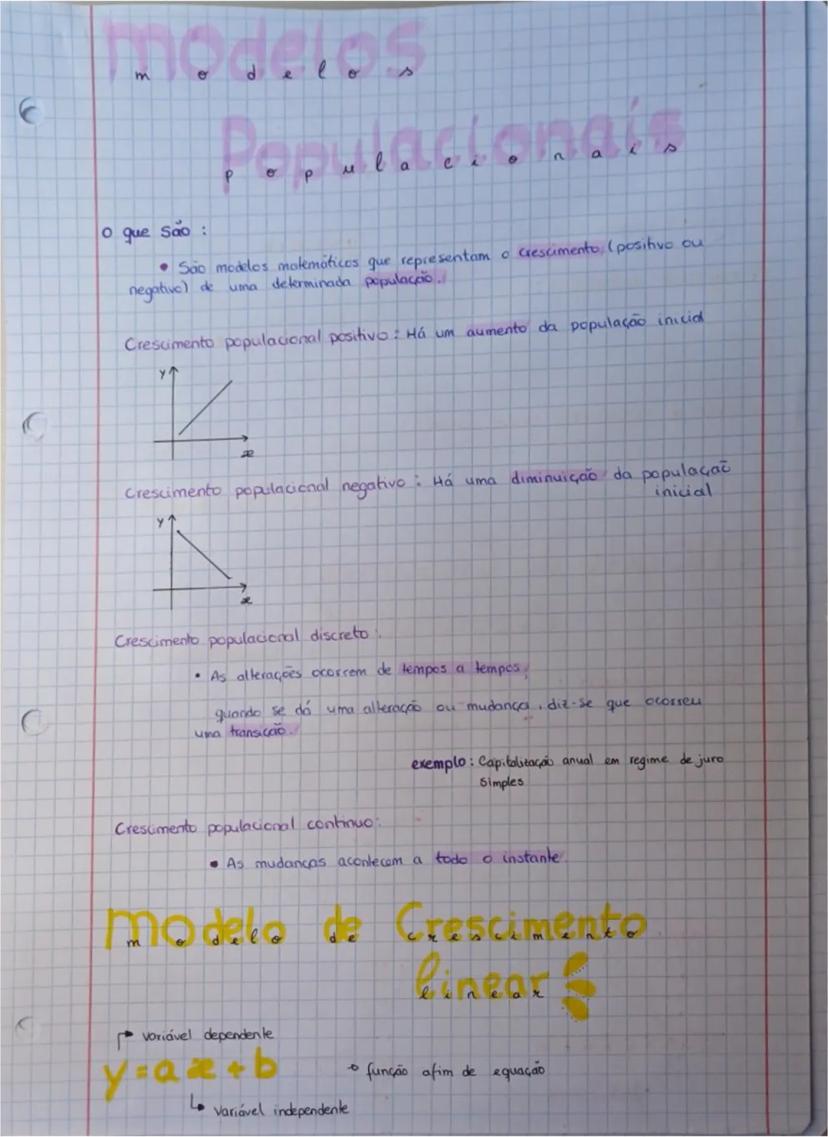 modelos
modelos
Populacionais
populacionais
O que são :
• São modelos matemáticos que representam o crescimento (positivo ou
negativo) de uma determinada população.
Crescimento populacional positivo : Há um aumento da população inicial
y
x
Crescimento populacional negativo : Há uma diminuição da população
inicial
y
x
Crescimento populacional discreto :
• As alterações ocorrem de tempos a tempos,
quando se dá uma alteração ou mudança, diz-se que ocorreu
uma transição.
exemplo : Capitalização anual em regime de juro
simples
Crescimento populacional continuo:
• As mudanças acontecem a todo o instante
modelo de Crescimento
modelo de crescimento
linear
linear
variável dependente
y = ax + b
função afim de equação
variável independente